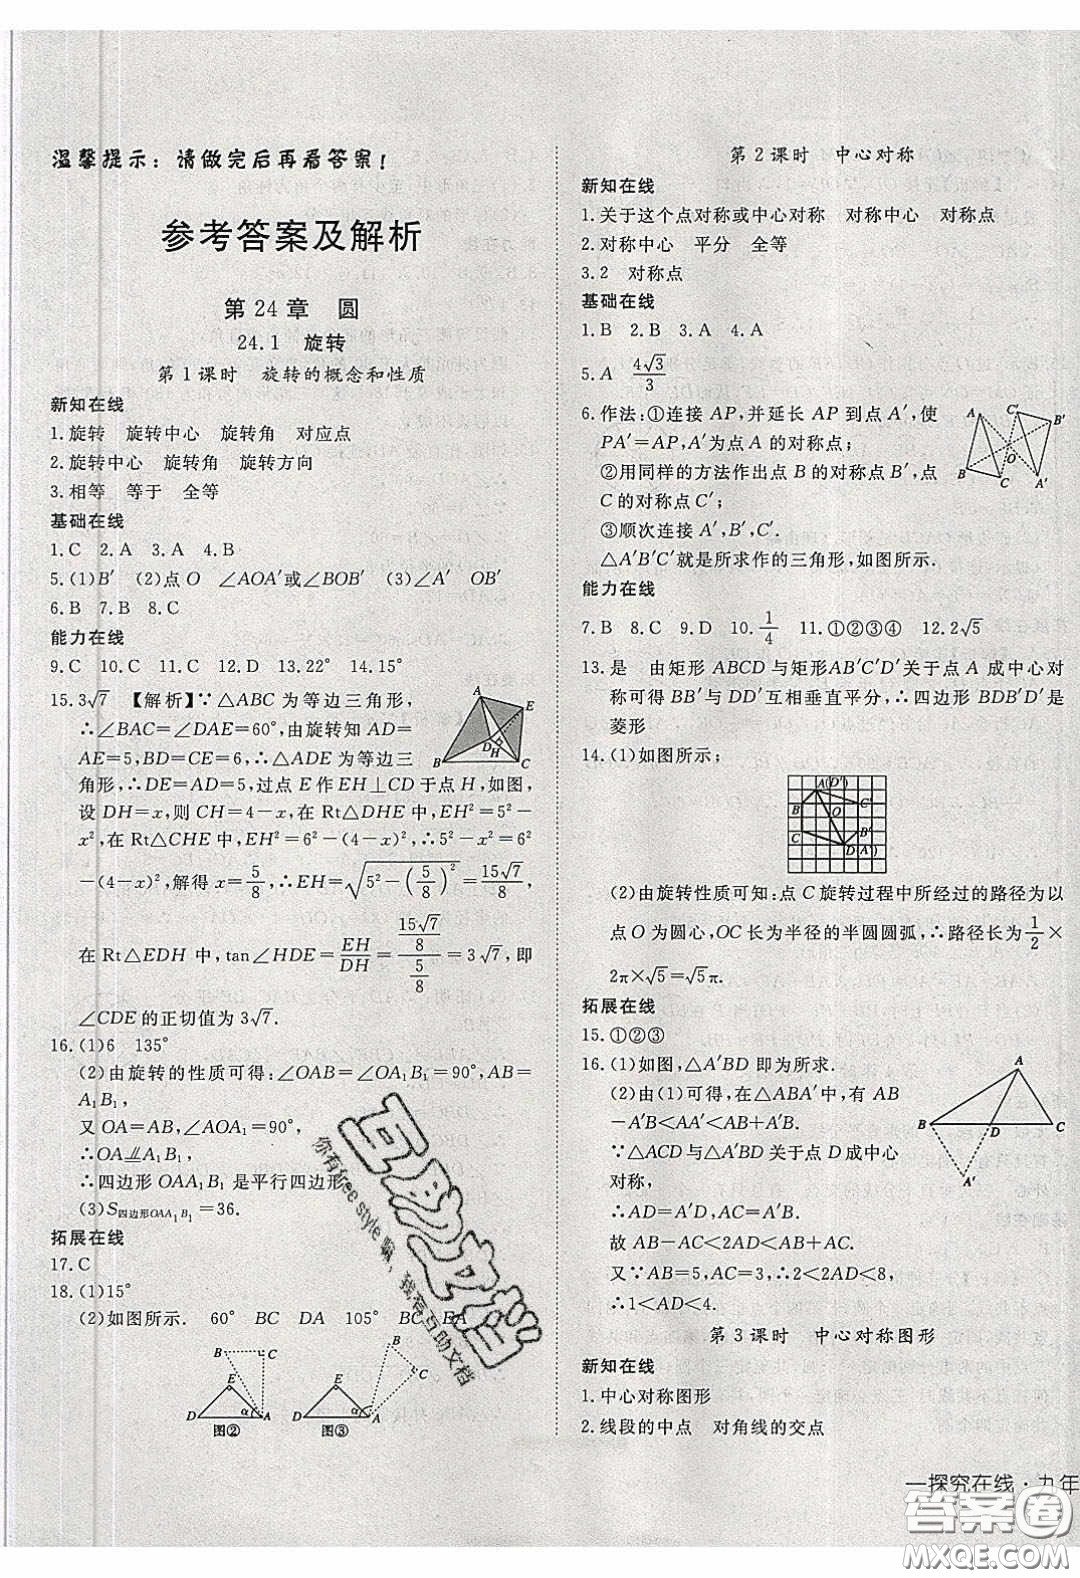 温馨提示：请做完后再看答案！
参考答案及解析
第24章 圆
24.1 旋转
第1课时 旋转的概念和性质
新知在线
1.旋转 旋转中心 旋转角 对应点
2.旋转中心 旋转角 旋转方向
3.相等 等于 全等
基础在线
1.C 2.A 3.A 4.B
5.(1)B′ (2)点O ∠AOA′或∠BOB′ (3)∠A′ OB′
6.B 7.B 8.C
能力在线
9.C 10.C 11.C 12.D 13.22° 14.15°
15.3√7 【解析】∵△ABC为等边三角形，
∴∠BAC=∠DAE=60°,由旋转知AD=
AE=5,BD=CE=6,∴△ADE为等边三
角形,∴DE=AD=5,过点E作EH⊥CD于点H,如图,
设DH=x,则CH=4-x,在Rt△DHE中,EH²=5²-
x²,在Rt△CHE中,EH²=6²-(4-x)²,∴5²-x²=6²
-(4-x)²,解得x=5/8,∴EH=√(5²-(5/8)²)=15√7/8,
在Rt△EDH中,tan∠HDE=EH/DH=(15√7/8)/(5/8)=3√7,即
∠CDE的正切值为3√7.
A
E
D
H
B
C
16.(1)6 135°
(2)由旋转的性质可得:∠OAB=∠OA₁B₁=90°,AB=
A₁B₁,
又OA=AB,∠AOA₁=90°,
∴OA⫽A₁B₁,
∴四边形OAA₁B₁是平行四边形
(3)S四边形OAA₁B₁=36.
拓展在线
17.C
18.(1)15°
(2)如图所示. 60° BC DA 105° BC EA
B
C
E
D
α
A
图②
B
C
E
D
α
A
图③
第2课时 中心对称
新知在线
1.关于这个点对称或中心对称 对称中心 对称点
2.对称中心 平分 全等
3.2 对称点
基础在线
1.B 2.B 3.A 4.A
5.A 4√3/3
6.作法:①连接AP,并延长AP到点A′,使
PA′=AP,A′为点A的对称点;
②用同样的方法作出点B的对称点B′,点
C的对称点C′;
③顺次连接A′,B′,C′.
△A′B′C′就是所求作的三角形,如图所示.
A
C′
B′
O
B
C
A′
能力在线
7.B 8.C 9.D 10.1/4 11.①②③④ 12.2√5
13.是 由矩形ABCD与矩形AB′C′D′关于点A成中心对
称可得BB′与DD′互相垂直平分,∴四边形BDB′D′是
菱形
14.(1)如图所示;
A(D′)
B
C′
O
C
B′
D(A′)
(2)由旋转性质可知:点C旋转过程中所经过的路径为以
点O为圆心,OC长为半径的半圆圆弧,∴路径长为1/2×
2π×√5=√5π.
拓展在线
15.①②③
16.(1)如图,△A′BD即为所求.
(2)由(1)可得,在△ABA′中,有AB
-A′B<AA′<AB+A′B.
∵△ACD与△A′BD关于点D成中心
对称,
∴AD=A′D,AC=A′B.
故AB-AC<2AD<AB+AC.
又∵AB=5,AC=3,∴2<2AD<8,
∴1<AD<4.
A
B
D
C
A′
第3课时 中心对称图形
新知在线
1.中心对称图形
2.线段的中点 对角线的交点
一探究在线·九年
互动文档
你有free style嘛，我有互助文档
答案圈
MXQE.COM